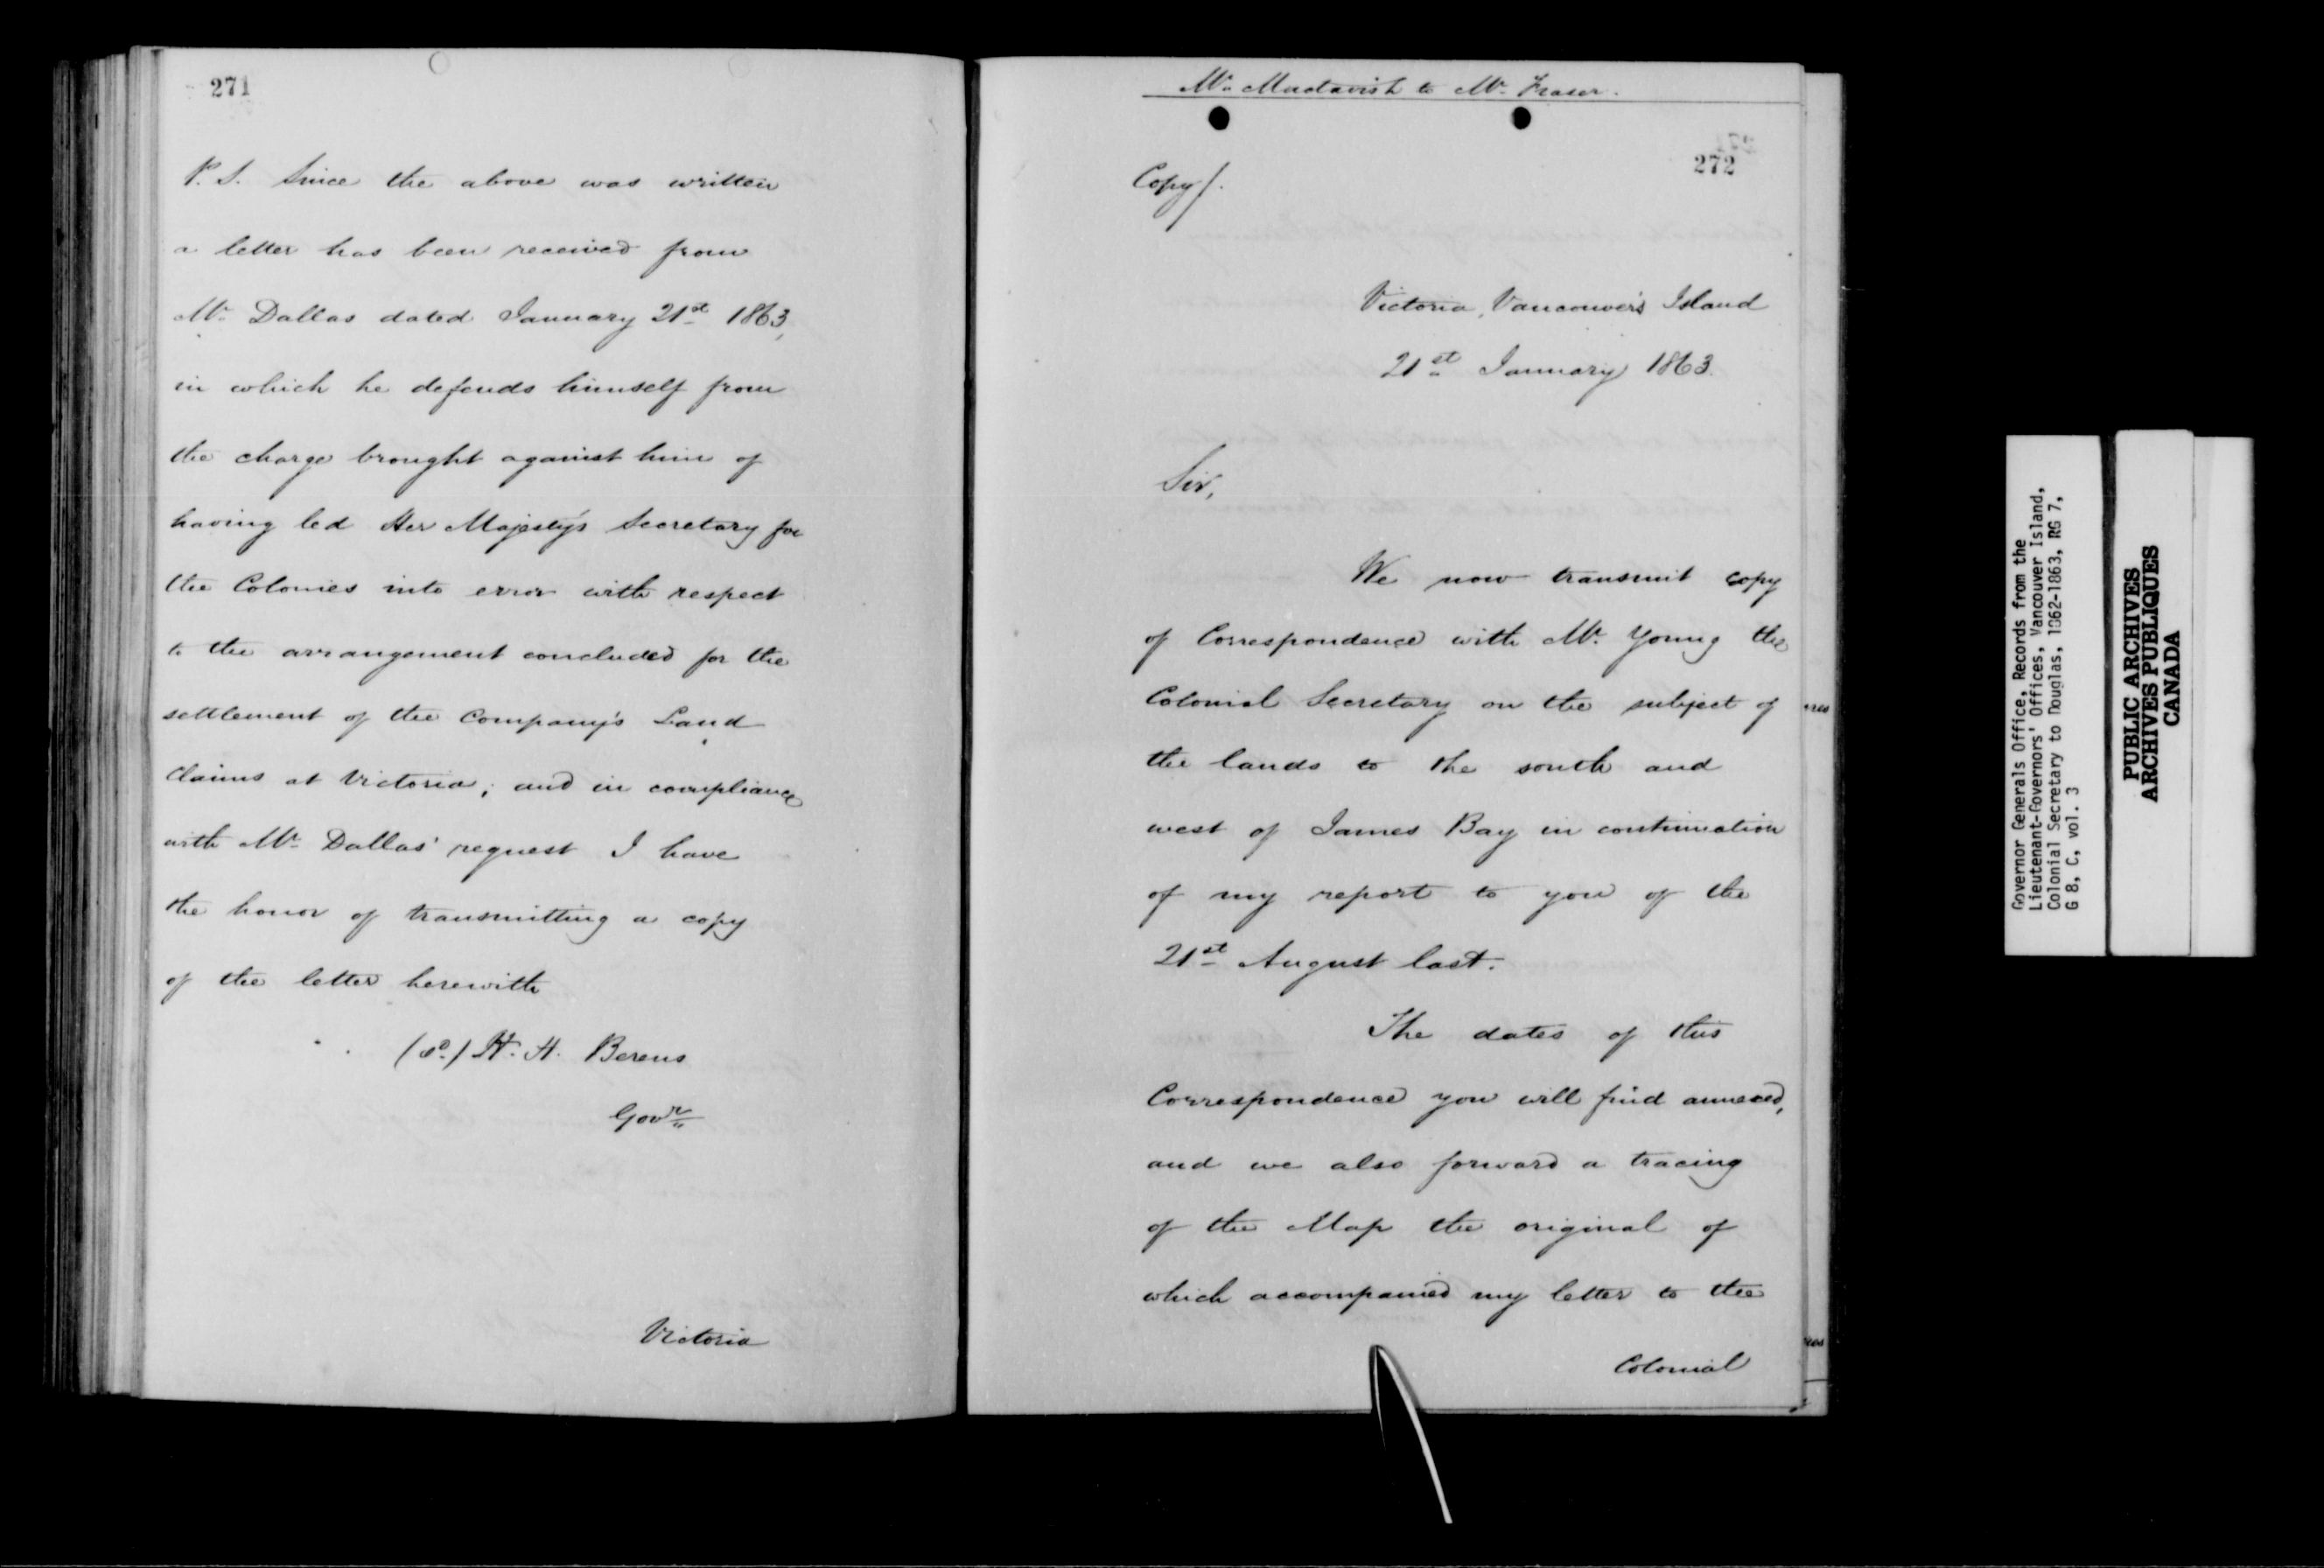 271
P.S. Since the above was written
a letter has been received from
Mr. Dallas dated January 21st 1863,
in which he defends himself from
the charge brought against him of
having led Her Majesty's Secretary for
the Colonies into error with respect
to the arrangement concluded for the
settlement of the Company's Land
Claims at Victoria; and in compliance
with Mr. Dallas' request I have
the honor of transmitting a copy
of the letter herewith
H. H. Berens
Govr.
Victoria
Mr. Mactavish to Mr. Fraser.
272
Copy/.
Victoria, Vancouver's Island
21st January 1863.
Sir,
We now transmit copy
of Correspondence with Mr. Young the
Colonial Secretary on the subject of
the lands to the south and
west of James Bay in continuation
of my report to you of the
21st August last.
The dates of this
Correspondence you will find annexed,
and we also forward a tracing
of the Map the original of
which accompanied my letter to the
Colonial
Governor Generals Office, Records from the
Lieutenant-Governors' Offices, Vancouver Island,
Colonial Secretary to Douglas, 1862-1863, RG 7,
G 8, C, vol. 3
PUBLIC ARCHIVES
ARCHIVES PUBLIQUES
CANADA